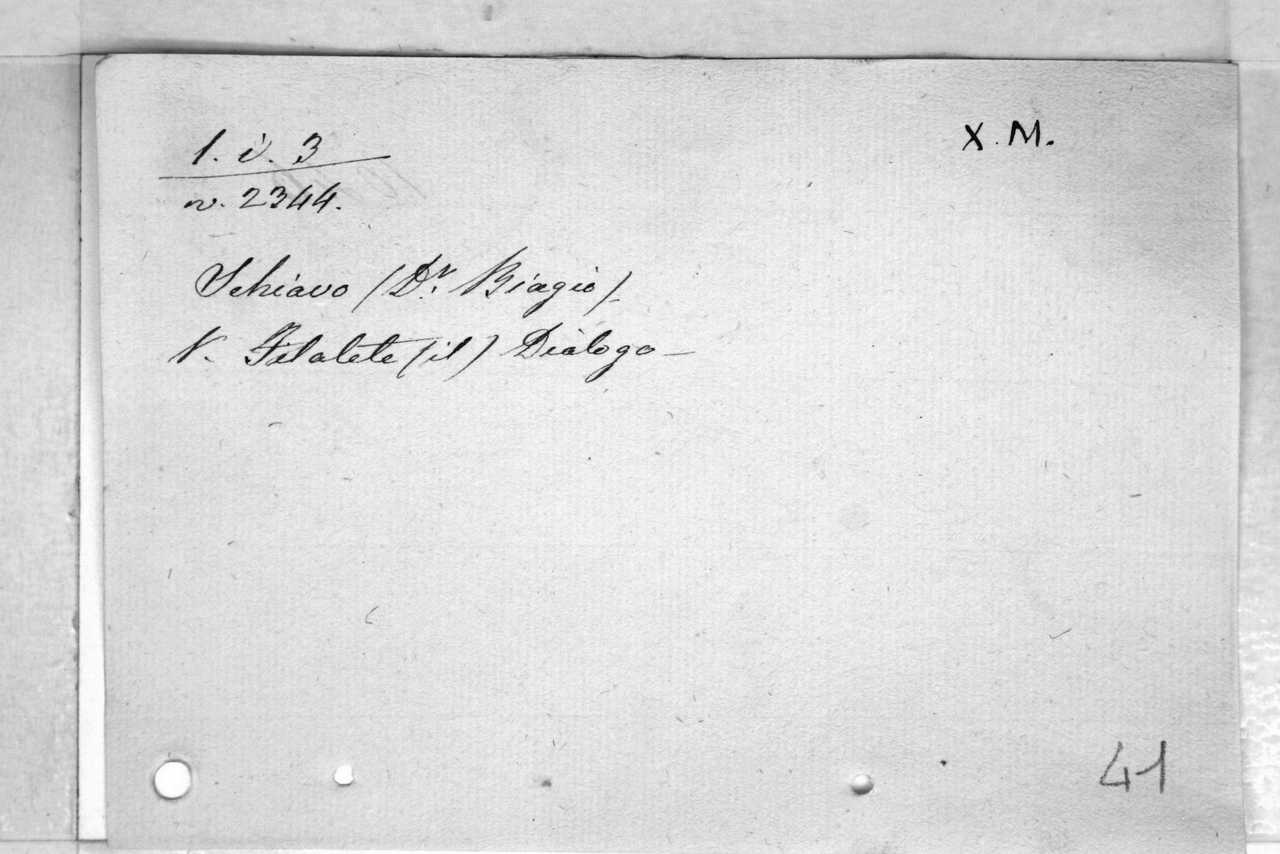 1. i. 3
X. M.
n. 2344.
Schiavo (Dr. Biagio)
V. Filalete (il) Dialogo—
41